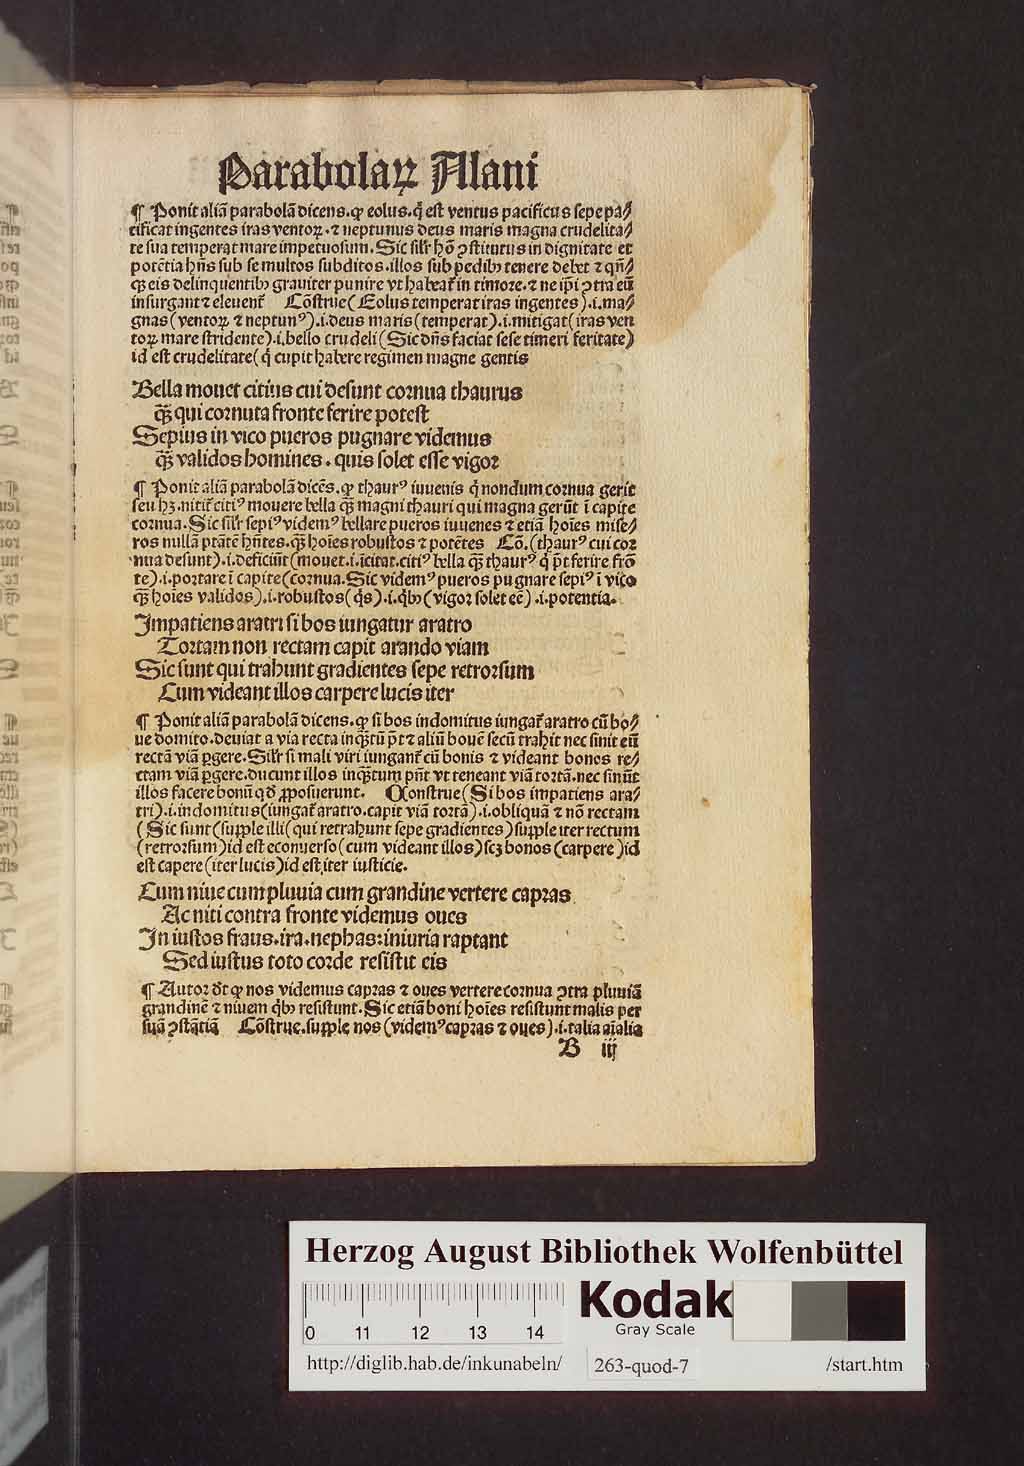 Parabolaꝝ Alani
¶ Ponit aliā parabolā dicens. ꝙ eolus. q̄ est ventus pacificus sepe pa⸗
cificat ingentes iras ventoꝝ. ⁊ neptunus deus maris magna crudelita⸗
te sua temperat mare impetuosum. Sic silr̄ hō ↄstitutus in dignitate et
potētia hn̄s sub se multos subditos. illos sub pedibꝰ tenere debet ⁊ qn̄⸗
qꝫ eis delinquentibꝰ grauiter punire vt habeat̄ in timore. ⁊ ne ip̄i ↄtra eū
insurgant ⁊ eleuent̄ Cōstrue (Eolus temperat iras ingentes) .i. ma⸗
gnas (ventoꝝ ⁊ neptunꝰ) .i. deus maris (temperat) .i. mitigat (iras ven
toꝝ mare stridente) .i. bello crudeli (Sic dn̄s faciat sese timeri feritate)
id est crudelitate (q̄ cupit habere regimen magne gentis
Bella mouet citius cui desunt cornua thaurus
qꝫ̄ qui cornuta fronte ferire potest
Sepius in vico pueros pugnare videmus
qꝫ̄ validos homines. quis solet esse vigor
¶ Ponit aliā parabolā dicēs. ꝙ thaurꝰ iuuenis q̄ nondum cornua gerit
seu hꝫ. nitit̄ citiꝰ mouere bella qꝫ̄ magni thauri qui magna gerūt ī capite
cornua. Sic silr̄ sepiꝰ videmꝰ bellare pueros iuuenes ⁊ etiā hoīes mise⸗
ros nullā ptātē hn̄tes. qꝫ̄ hoīes robustos ⁊ potētes Cō. (thaurꝰ cui cor
nua desunt) .i. deficiūt (mouet .i. īcitat. citiꝰ bella qꝫ̄ thaurꝰ q̄ p̄t ferire frō
te) .i. portare ī capite (cornua. Sic videmꝰ pueros pugnare sepiꝰ ī vico
qꝫ̄ hoīes validos) .i. robustos (q̄s) .i. q̄bꝰ (vigor solet eē) .i. potentia.
Impatiens aratri si bos iungatur aratro
Tortam non rectam capit arando viam
Sic sunt qui trahunt gradientes sepe retrorsum
Cum videant illos carpere lucis iter
¶ Ponit aliā parabolā dicens. ꝙ si bos indomitus iungat̄ aratro cū bo⸗
ue domito. deuiat a via recta inqꝫ̄tū p̄t ⁊ aliū bouē secū trahit nec sinit eū
rectā viā ꝑgere. Silr̄ si mali viri iungant̄ cū bonis ⁊ videant bonos re⸗
ctam viā ꝑgere. ducunt illos inqꝫ̄tum pn̄t vt teneant viā tortā. nec sinūt
illos facere bonū qd̄ ꝓposuerunt. Construe (Si bos impatiens ara⸗
tri) .i. indomitus (iungat̄ aratro. capit viā tortā) .i. obliquā ⁊ nō rectam
(Sic sunt (supple illi (qui retrahunt sepe gradientes) supple iter rectum
(retrorsum) id est econuerso (cum videant illos) scꝫ bonos (carpere) id
est capere (iter lucis) id est, iter iusticie.
Cum niue cum pluuia cum grandine vertere capras
Ac niti contra fronte videmus oues
In iustos fraus. ira. nephas: iniuria raptant
Sed iustus toto corde resistit eis
¶ Autor dt̄ ꝙ nos videmus capras ⁊ oues vertere cornua ↄtra pluuiā
grandinē ⁊ niuem q̄bꝰ resistunt. Sic etiā boni hoīes resistunt malis per
suā ↄstātiā Cōstrue. supple nos (videmꝰ capras ⁊ oues) .i. talia aīalia
B iij
Herzog August Bibliothek Wolfenbüttel
0 11 12 13 14
Kodak
Gray Scale
http://diglib.hab.de/inkunabeln/ 263-quod-7 /start.htm